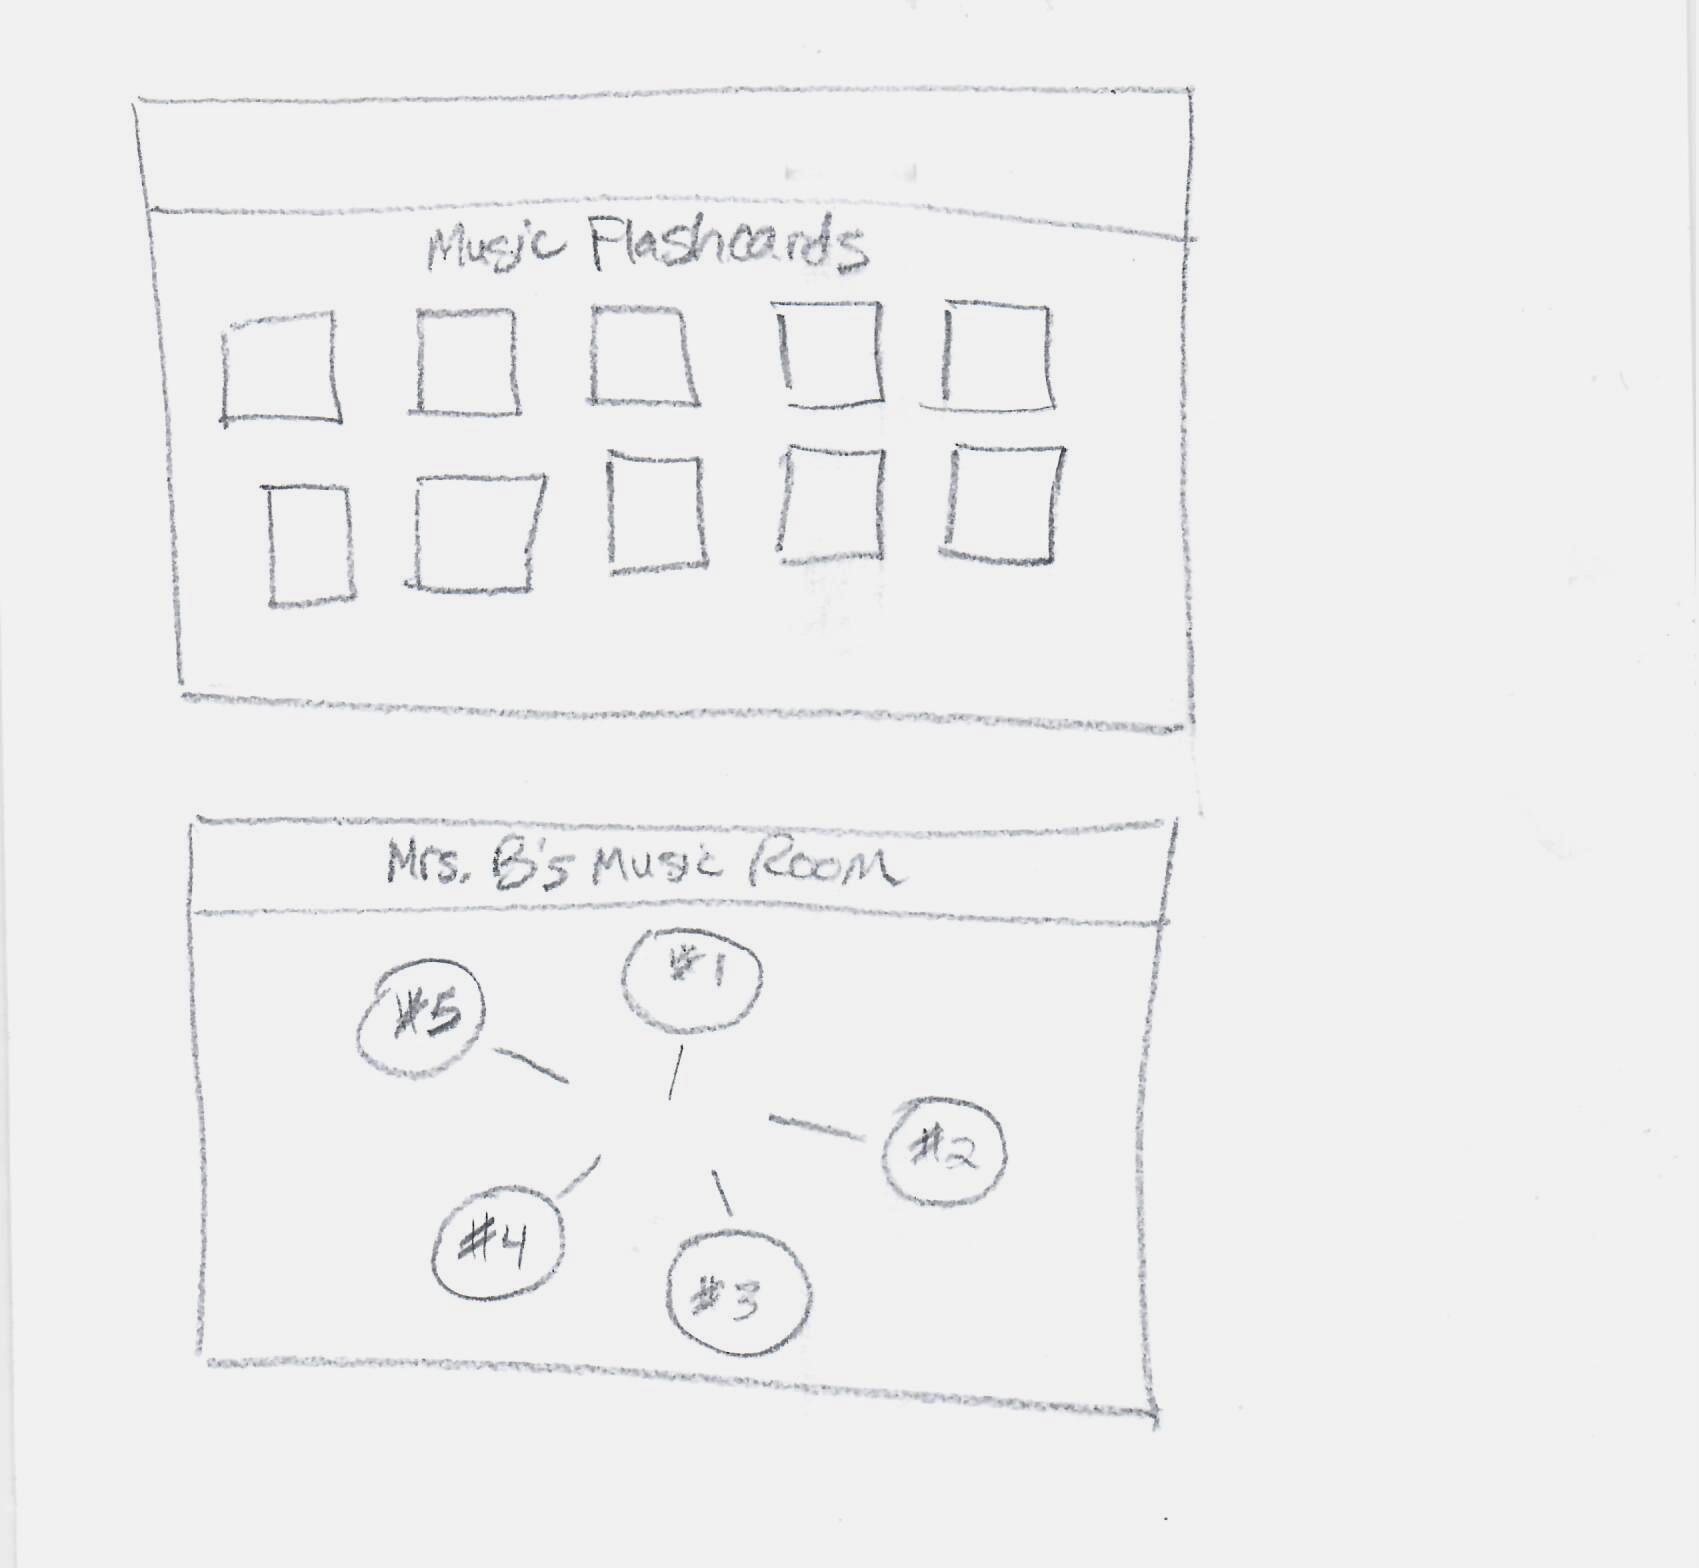 Music Flashcards
Mrs. B's Music Room
#1
#5
#2
#4
#3